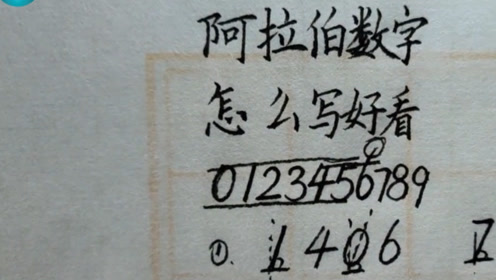 阿拉伯数字
怎么写好看
0123456789
①. 1 4 0 6